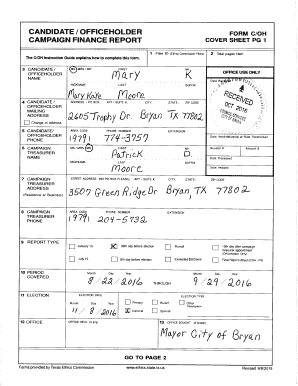 CANDIDATE / OFFICEHOLDER
CAMPAIGN FINANCE REPORT
FORM C/OH
COVER SHEET PG 1
The C/OH Instruction Guide explains how to complete this form.
1 Filer ID (Ethics Commission Filers)
2 Total pages filed:
3 CANDIDATE / OFFICEHOLDER NAME
FIRST
MI
Mary
K
NICKNAME
LAST
SUFFIX
Mary Kaye Moore
OFFICE USE ONLY
Date Received
RECEIVED
OCT 2016
4 CANDIDATE / OFFICEHOLDER MAILING ADDRESS
Change of Address
ADDRESS / PO BOX; APT / SUITE #; CITY; STATE; ZIP CODE
2605 Trophy Dr. Bryan TX 77802
5 CANDIDATE / OFFICEHOLDER PHONE
AREA CODE
PHONE NUMBER
EXTENSION
(979) 774-3757
Date Hand-delivered or Date Postmarked
Receipt #
Amount $
Date Processed
Date Imaged
6 CAMPAIGN TREASURER NAME
MS / MRS / MR
FIRST
MI
Patrick
D.
NICKNAME
LAST
SUFFIX
Moore
7 CAMPAIGN TREASURER ADDRESS
(Residence or Business)
STREET ADDRESS (NO PO BOX PLEASE); APT / SUITE #; CITY; STATE; ZIP CODE
3507 Green Ridge Dr. Bryan, TX 77802
8 CAMPAIGN TREASURER PHONE
AREA CODE
PHONE NUMBER
EXTENSION
(979) 204-5732
9 REPORT TYPE
January 15
30th day before election
Runoff
15th day after campaign treasurer appointment (Officeholder Only)
July 15
8th day before election
Exceeded $500 limit
Final Report (Attach C/OH - FR)
10 PERIOD COVERED
Month Day Year
8/22/2016
THROUGH
Month Day Year
9/29/2016
11 ELECTION
ELECTION DATE
Month Day Year
11/8/2016
ELECTION TYPE
Primary
Runoff
Other Description
General
Special
12 OFFICE
OFFICE HELD (if any)
13 OFFICE SOUGHT (if known)
Mayor City of Bryan
GO TO PAGE 2
Forms provided by Texas Ethics Commission
www.ethics.state.tx.us
Revised 9/8/2015